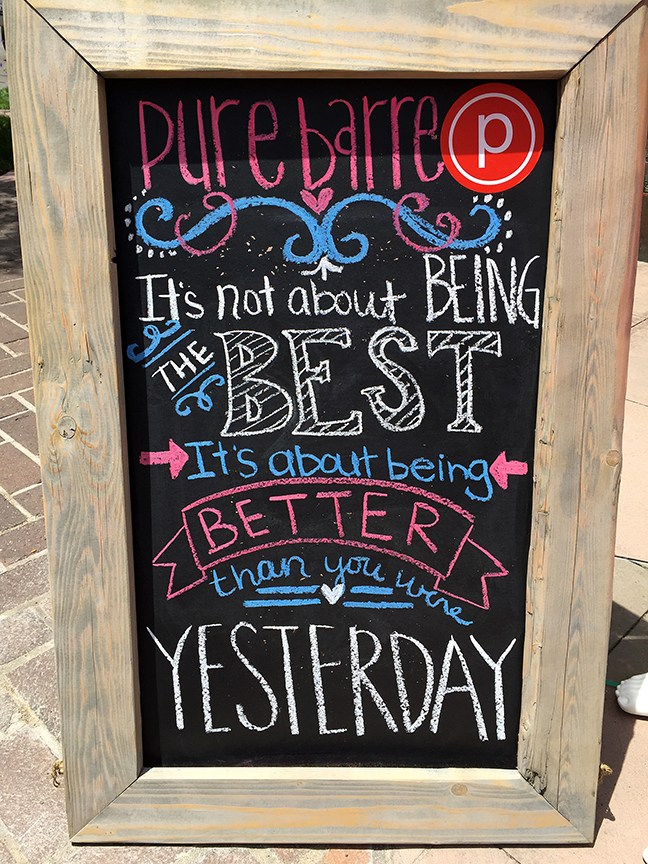 pure barre p
It's not about BEING
THE BEST
It's about being
BETTER
than you were
YESTERDAY